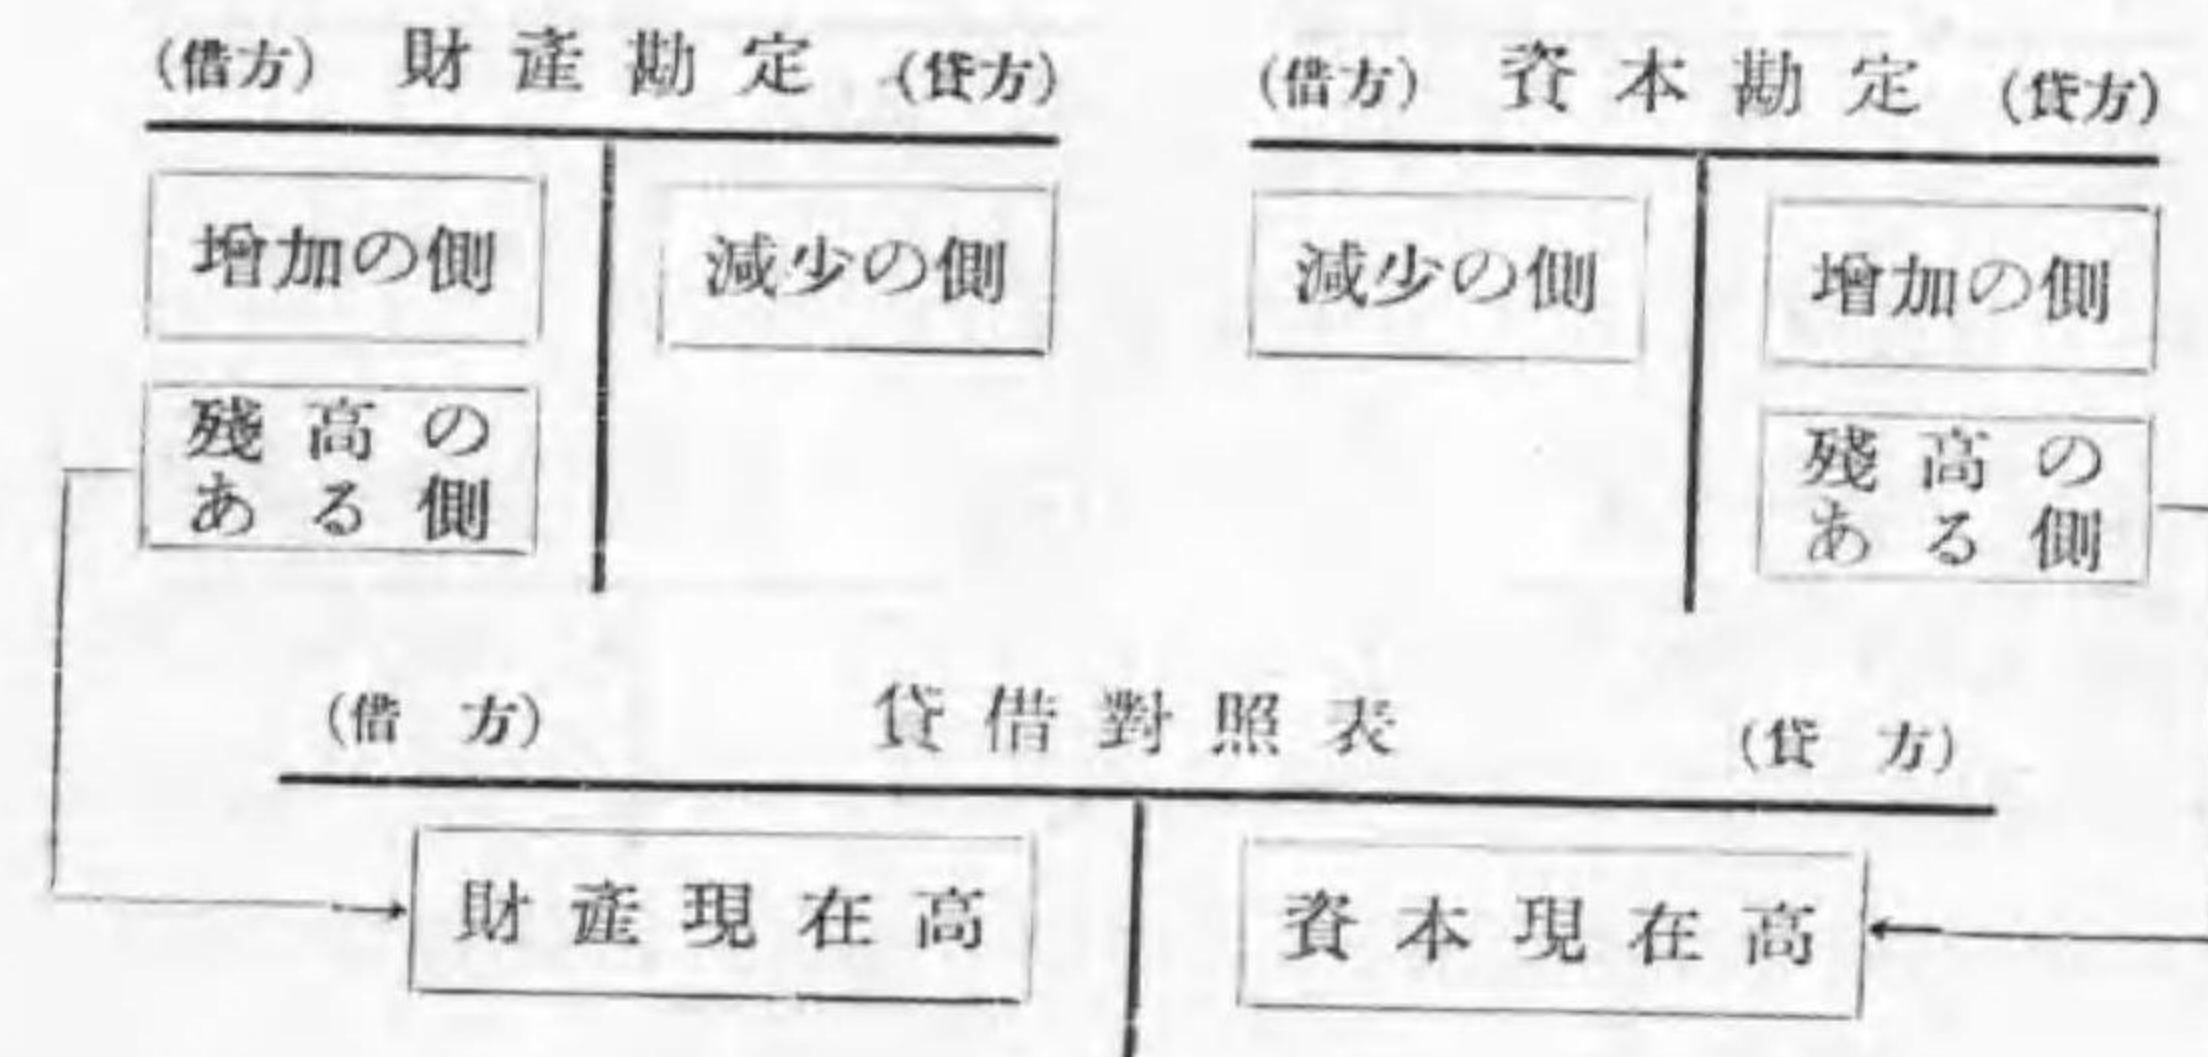 (借方) 財産勘定 (貸方)
増加の側
減少の側
殘高の
ある側
(借方) 資本勘定 (貸方)
減少の側
増加の側
殘高の
ある側
(借方) 貸借對照表 (貸方)
財産現在高
資本現在高